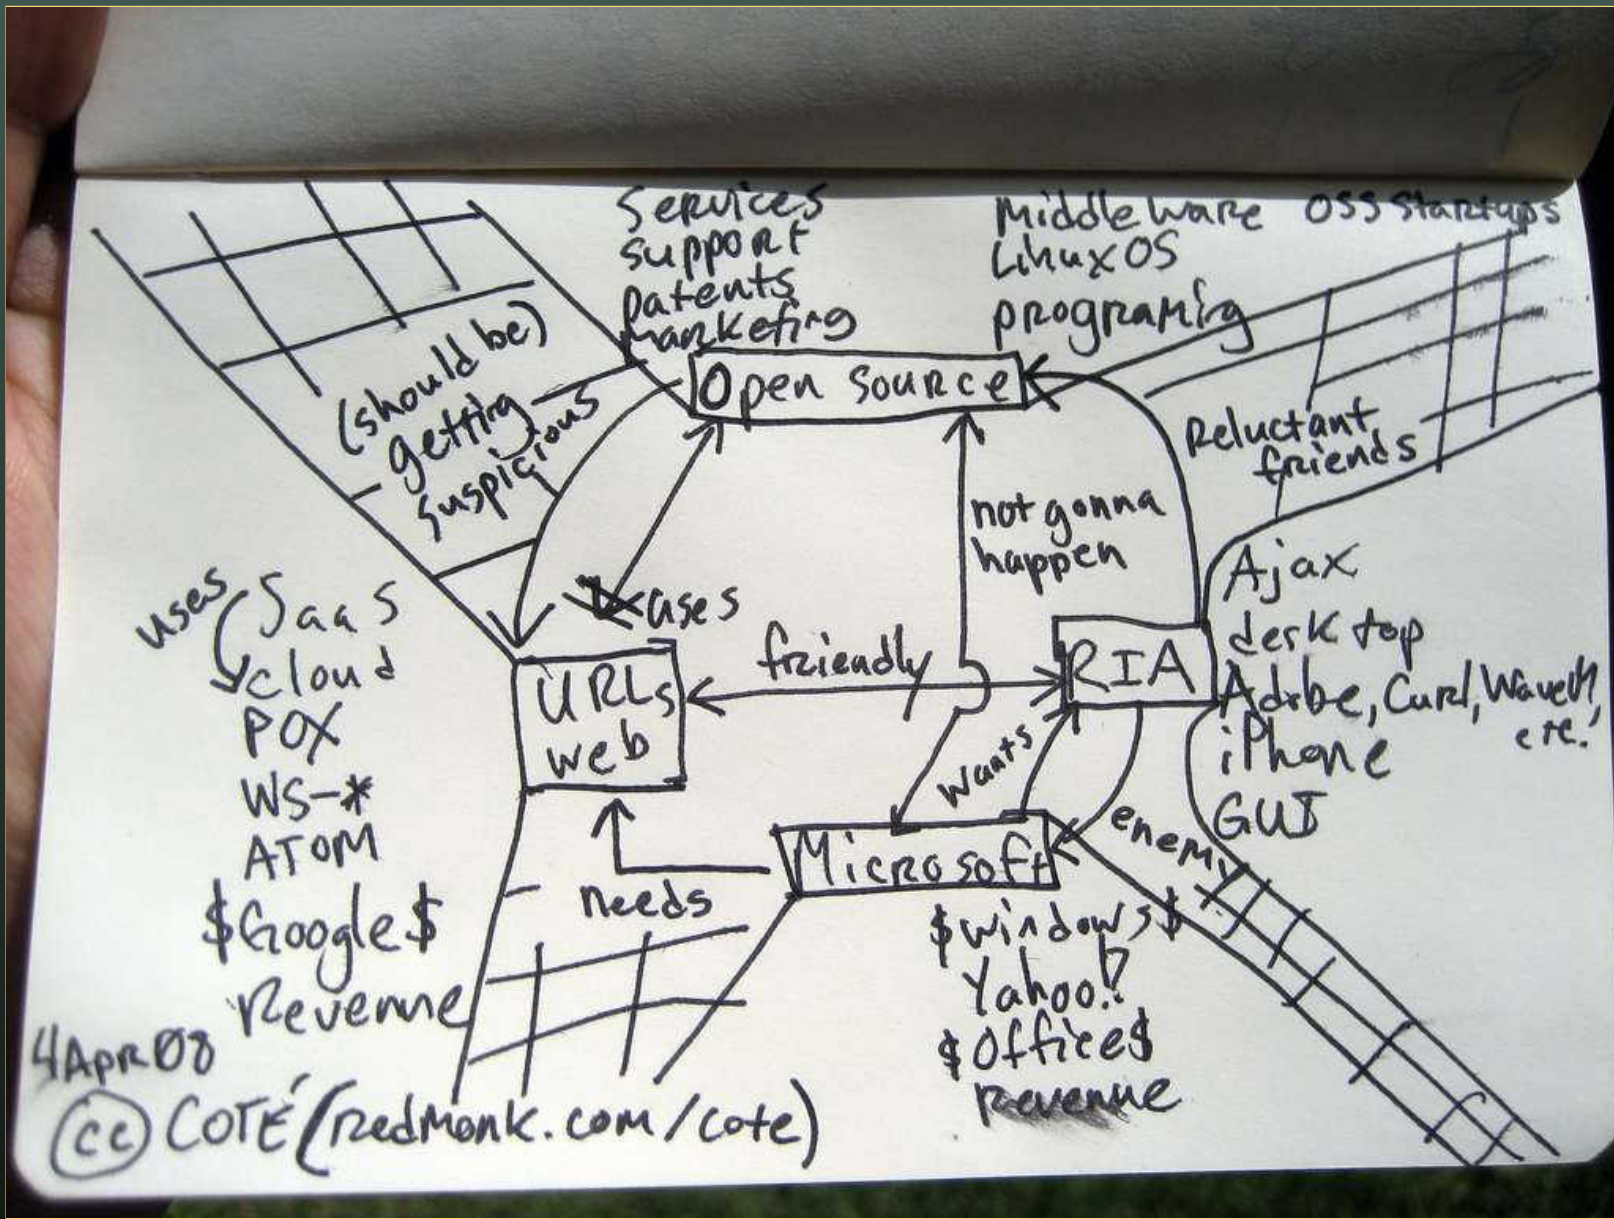 Services
support
patents
marketing
MiddleWare OSS Startups
LinuxOS
programing
Open Source
(should be)
getting
suspicious
Reluctant
friends
not gonna
happen
uses
SaaS
cloud
POX
WS-*
ATOM
$Google$
Revenue
uses
friendly
URLs
web
RIA
Ajax
desktop
Adobe, Curl,
etc.
iPhone
GUI
wants
enemy
Microsoft
needs
$windows$
Yahoo!?
$Office$
Revenue
4Apr08
cc COTÉ (redmonk.com/cote)